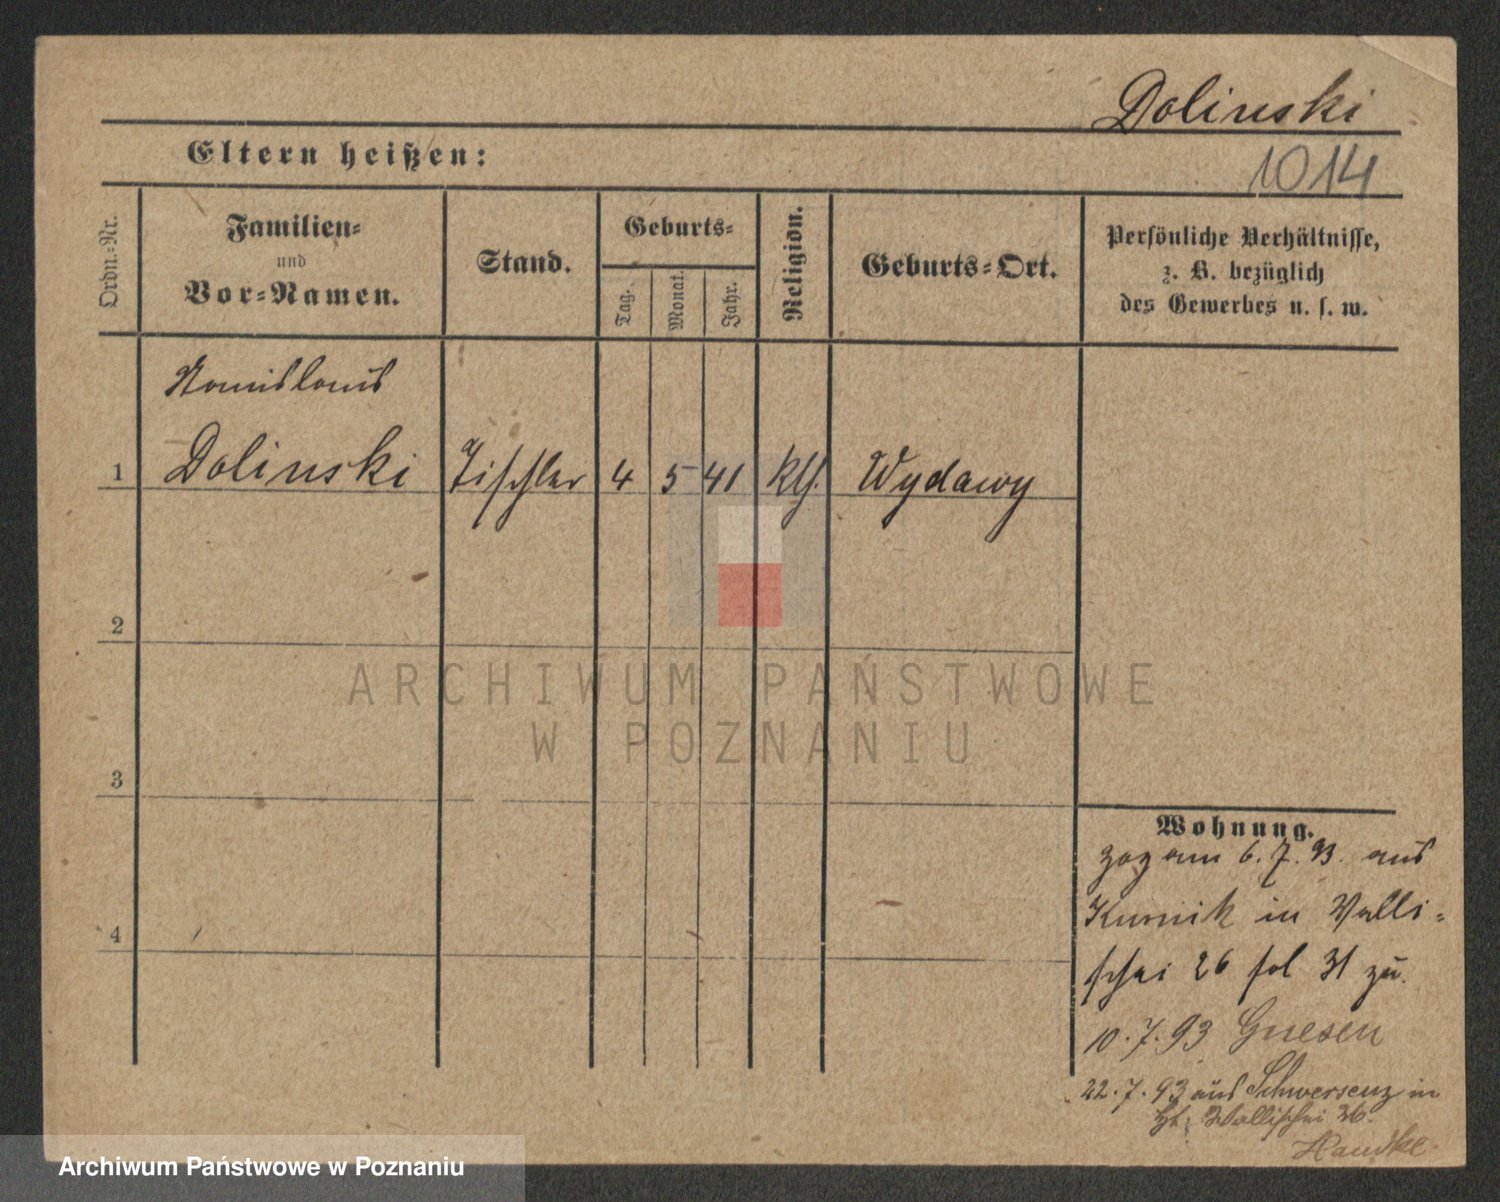 Dolinski
1014
Eltern heißen:
Ordn.-Nr.
Familien-
und
Vor-Namen.
Stand.
Geburts-
Tag.
Monat.
Jahr.
Religion.
Geburts-Ort.
Persönliche Verhältnisse,
z. B. bezüglich
des Gewerbes u. s. w.
1
Stanislaus
Dolinski
Tischler
4
5
41
Kth.
Wydawy
2
3
4
Wohnung.
zog am 6.7.93. aus
Kurnik in Walli-
schei 26 fol 31 zu.
10.7.93 Gnesen
22.7.93 aus Schwersenz in
Wallischei
Handke
ARCHIWUM PAŃSTWOWE
W POZNANIU
Archiwum Państwowe w Poznaniu